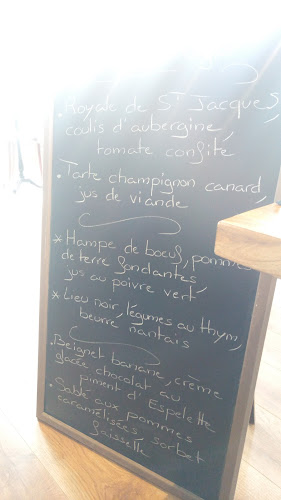 • Royale de St Jacques,
coulis d'aubergine,
tomate confite
• Tarte champignon canard,
jus de viande
* Hampe de boeuf, pommes
de terre fondantes,
jus au poivre vert
* Lieu noir, légumes au thym,
beurre nantais
• Beignet banane, crème
glacée chocolat au
piment d'Espelette
• Sablé aux pommes
caramélisées, sorbet
faisselle